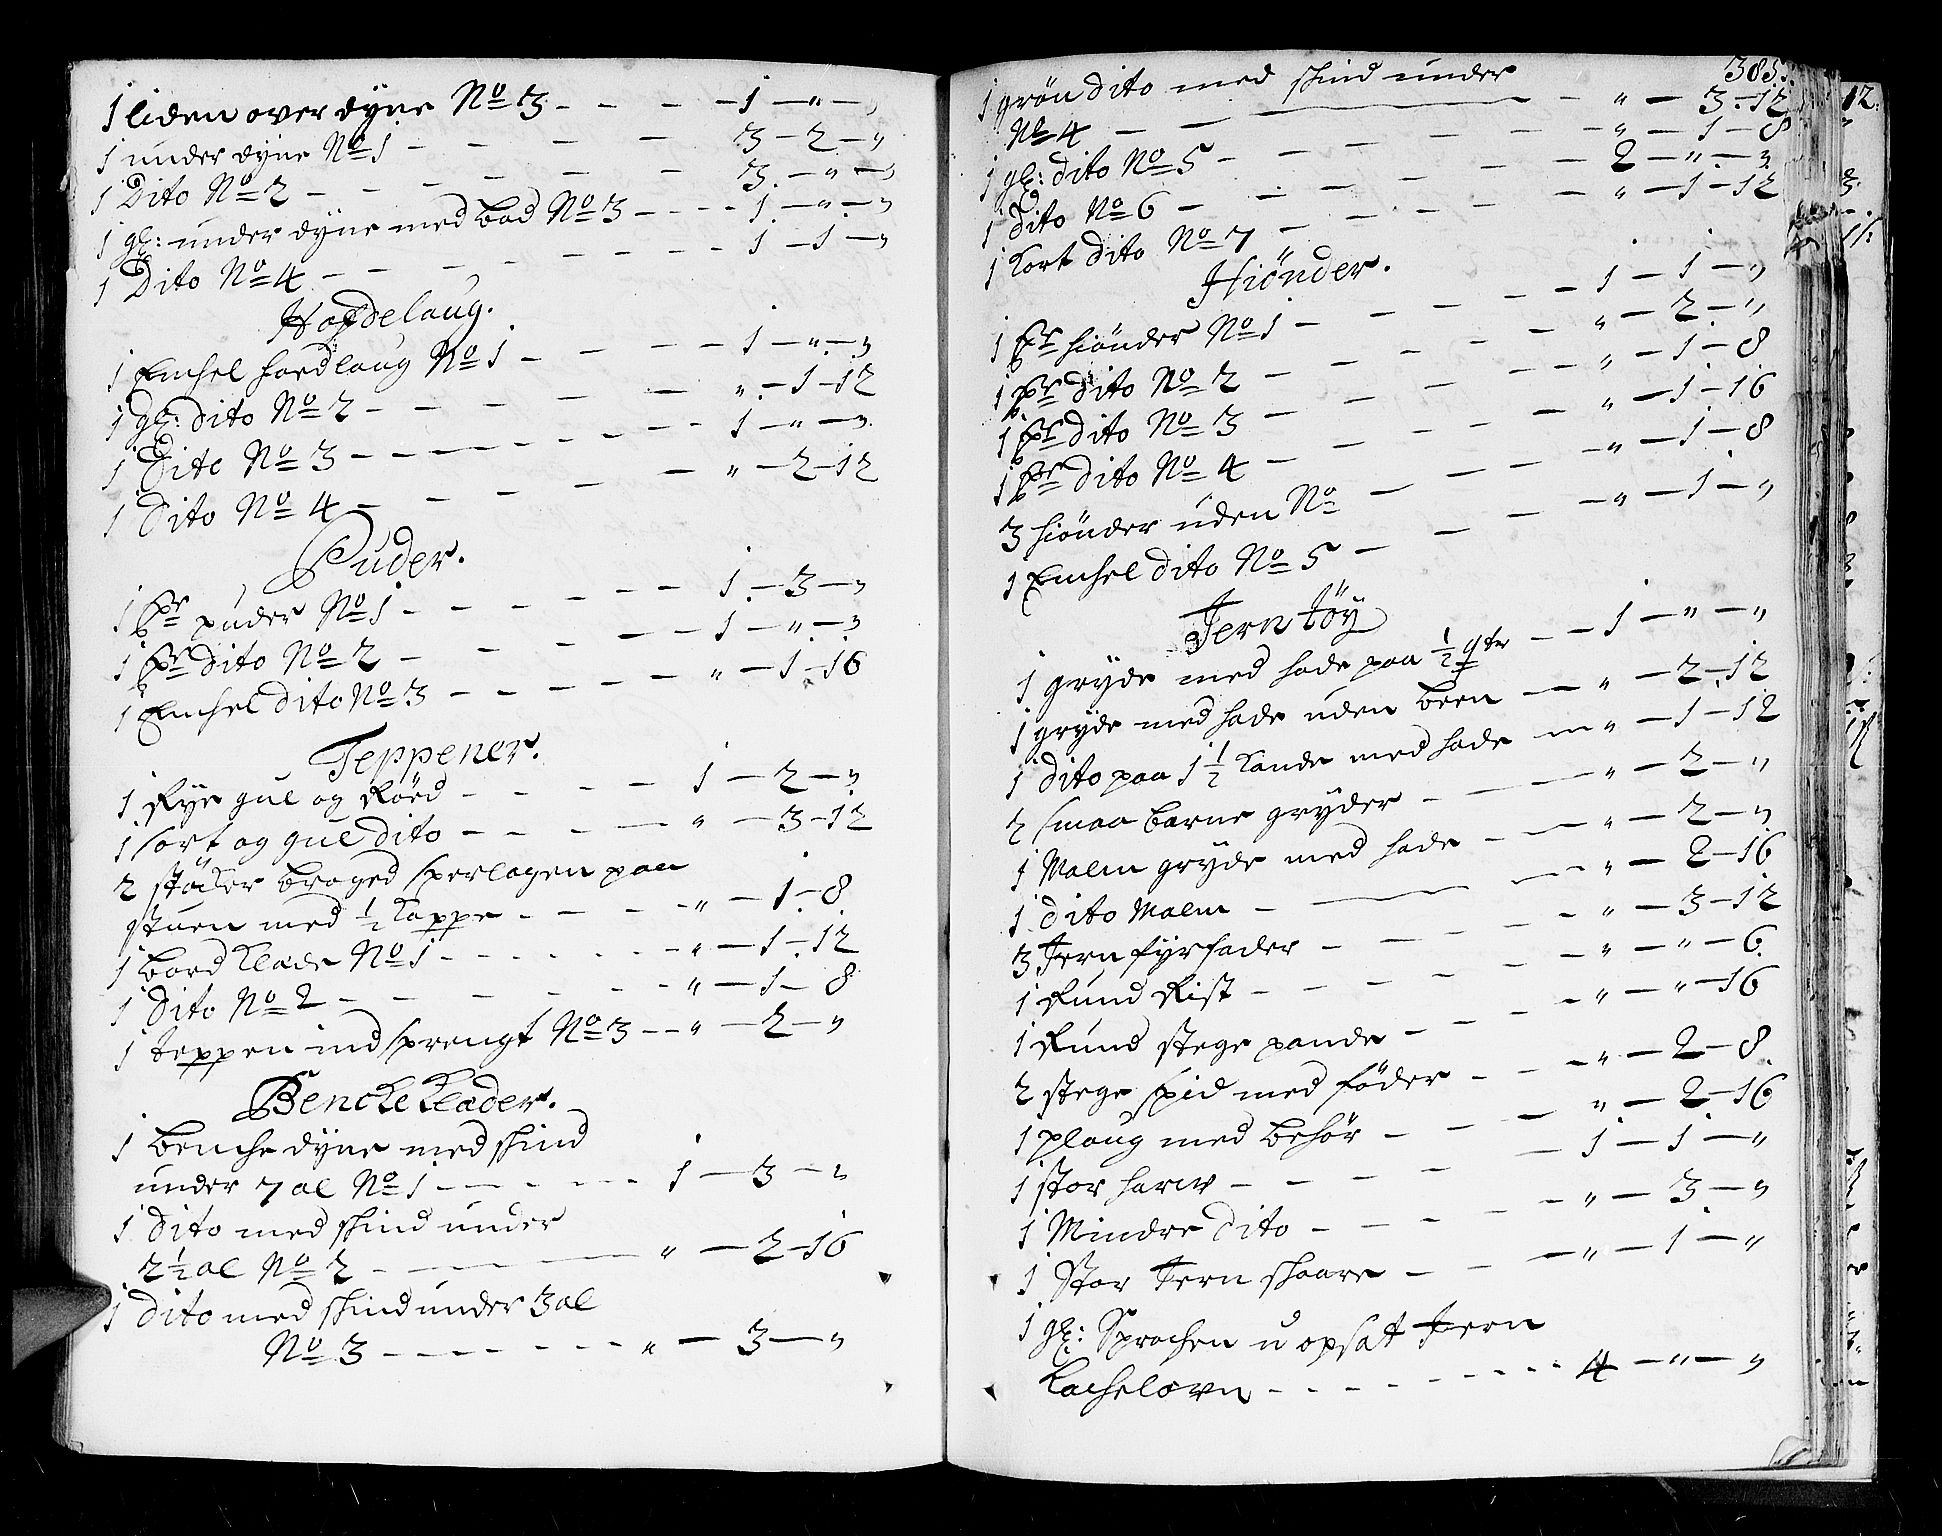 1 liden over dyne No 3 - - - - 1 - " - "
1 under dyne No 1 - - - - - 3 - 2 - "
1 Dito No 2 - - - - - - 3 - " - "
1 gl: under dyne med bad No 3 - - - - 1 - " - "
1 Dito No 4 - - - - - - - - 1 - 1 - "
Hofdelaug.
1 Enchel hoedlaug No 1 - - - - 1 - " - "
1 gl: dito No 2 - - - - - - " - 1 - 12
1 Dito No 3 - - - - - - - - 1 - " - "
1 Dito No 4 - - - - - - " - 2 - 12
Puder.
1 Pr puder No 1 - - - - - - 1 - 3 - "
1 Pr dito No 2 - - - - - 1 - " - "
1 Enchel dito No 3 - - - - - - " - 1 - 16
Teppener.
1 Rye gul og Röed - - - - - 1 - 2 - "
1 sort og gul dito - - - - " - 3 - 12
2 støcker broged sperlagen paa
stuen med ½ Kappe - - - - - " - 1 - 8
1 bord Klæde No 1 - - - - - - " - 1 - 12
1 Dito No 2 - - - - - - - " - 1 - 8
1 teppen ind sprengt No 3 - - " - 2 - "
Bencke Klæder.
1 benche dyne med skind
under 7 al No 1 - - - - - 1 - 3 - "
1 Dito med skind under
2½ al No 2 - - - " - 2 - 16
1 Dito med skind under 3 al
No 3 - - - - - - - " - 3 - "
385.
1 grön dito med skind under
No 4 - - - - " - 3 - 12
1 gl: dito No 5 - - - - - - " - 1 - 8
1 dito No 6 - - - - - - 2 - " - "
1 Kort dito No 7 - - - - - " - 1 - 12
Hiönder.
1 Pr hiönder No 1 - - - - - - 1 - 1 - "
1 Pr dito No 2 - - - - - " - 2 - "
1 Pr dito No 3 - - - - - " - 1 - 8
1 Pr dito No 4 - - - - - " - 1 - 16
3 hiönder uden No - - - - " - 1 - 8
1 Enchel dito No 5 - - - - " - 1 - "
Jern töy
1 gryde med hade paa ½ qtr - - 1 - " - "
1 gryde med hade uden been - - " - 2 - 12
1 dito paa 1½ Kande med hade - " - 1 - 12
2 smaa barne gryder - - - " - 2 - "
1 Malm gryde med hade - - - " - 2 - "
1 dito Malm - - - - " - 2 - 16
3 Jern fyrfader - - - - - " - 3 - 12
1 Rund Rist - - - - - - " - " - 6
1 Rund stege pande - - - - " - " - 16
2 stege spid med föder - - - - " - 2 - 8
1 ploug med behör - - - - " - 2 - 16
1 stor harw - - - - - 1 - 1 - "
1 Mindre dito - - - - - " - 3 - "
1 Stor Jern skaare - - - " - 1 - "
1 gl: Sprochen u opsat Jern
Kachelovn - - - - - - - - 4 - " - "